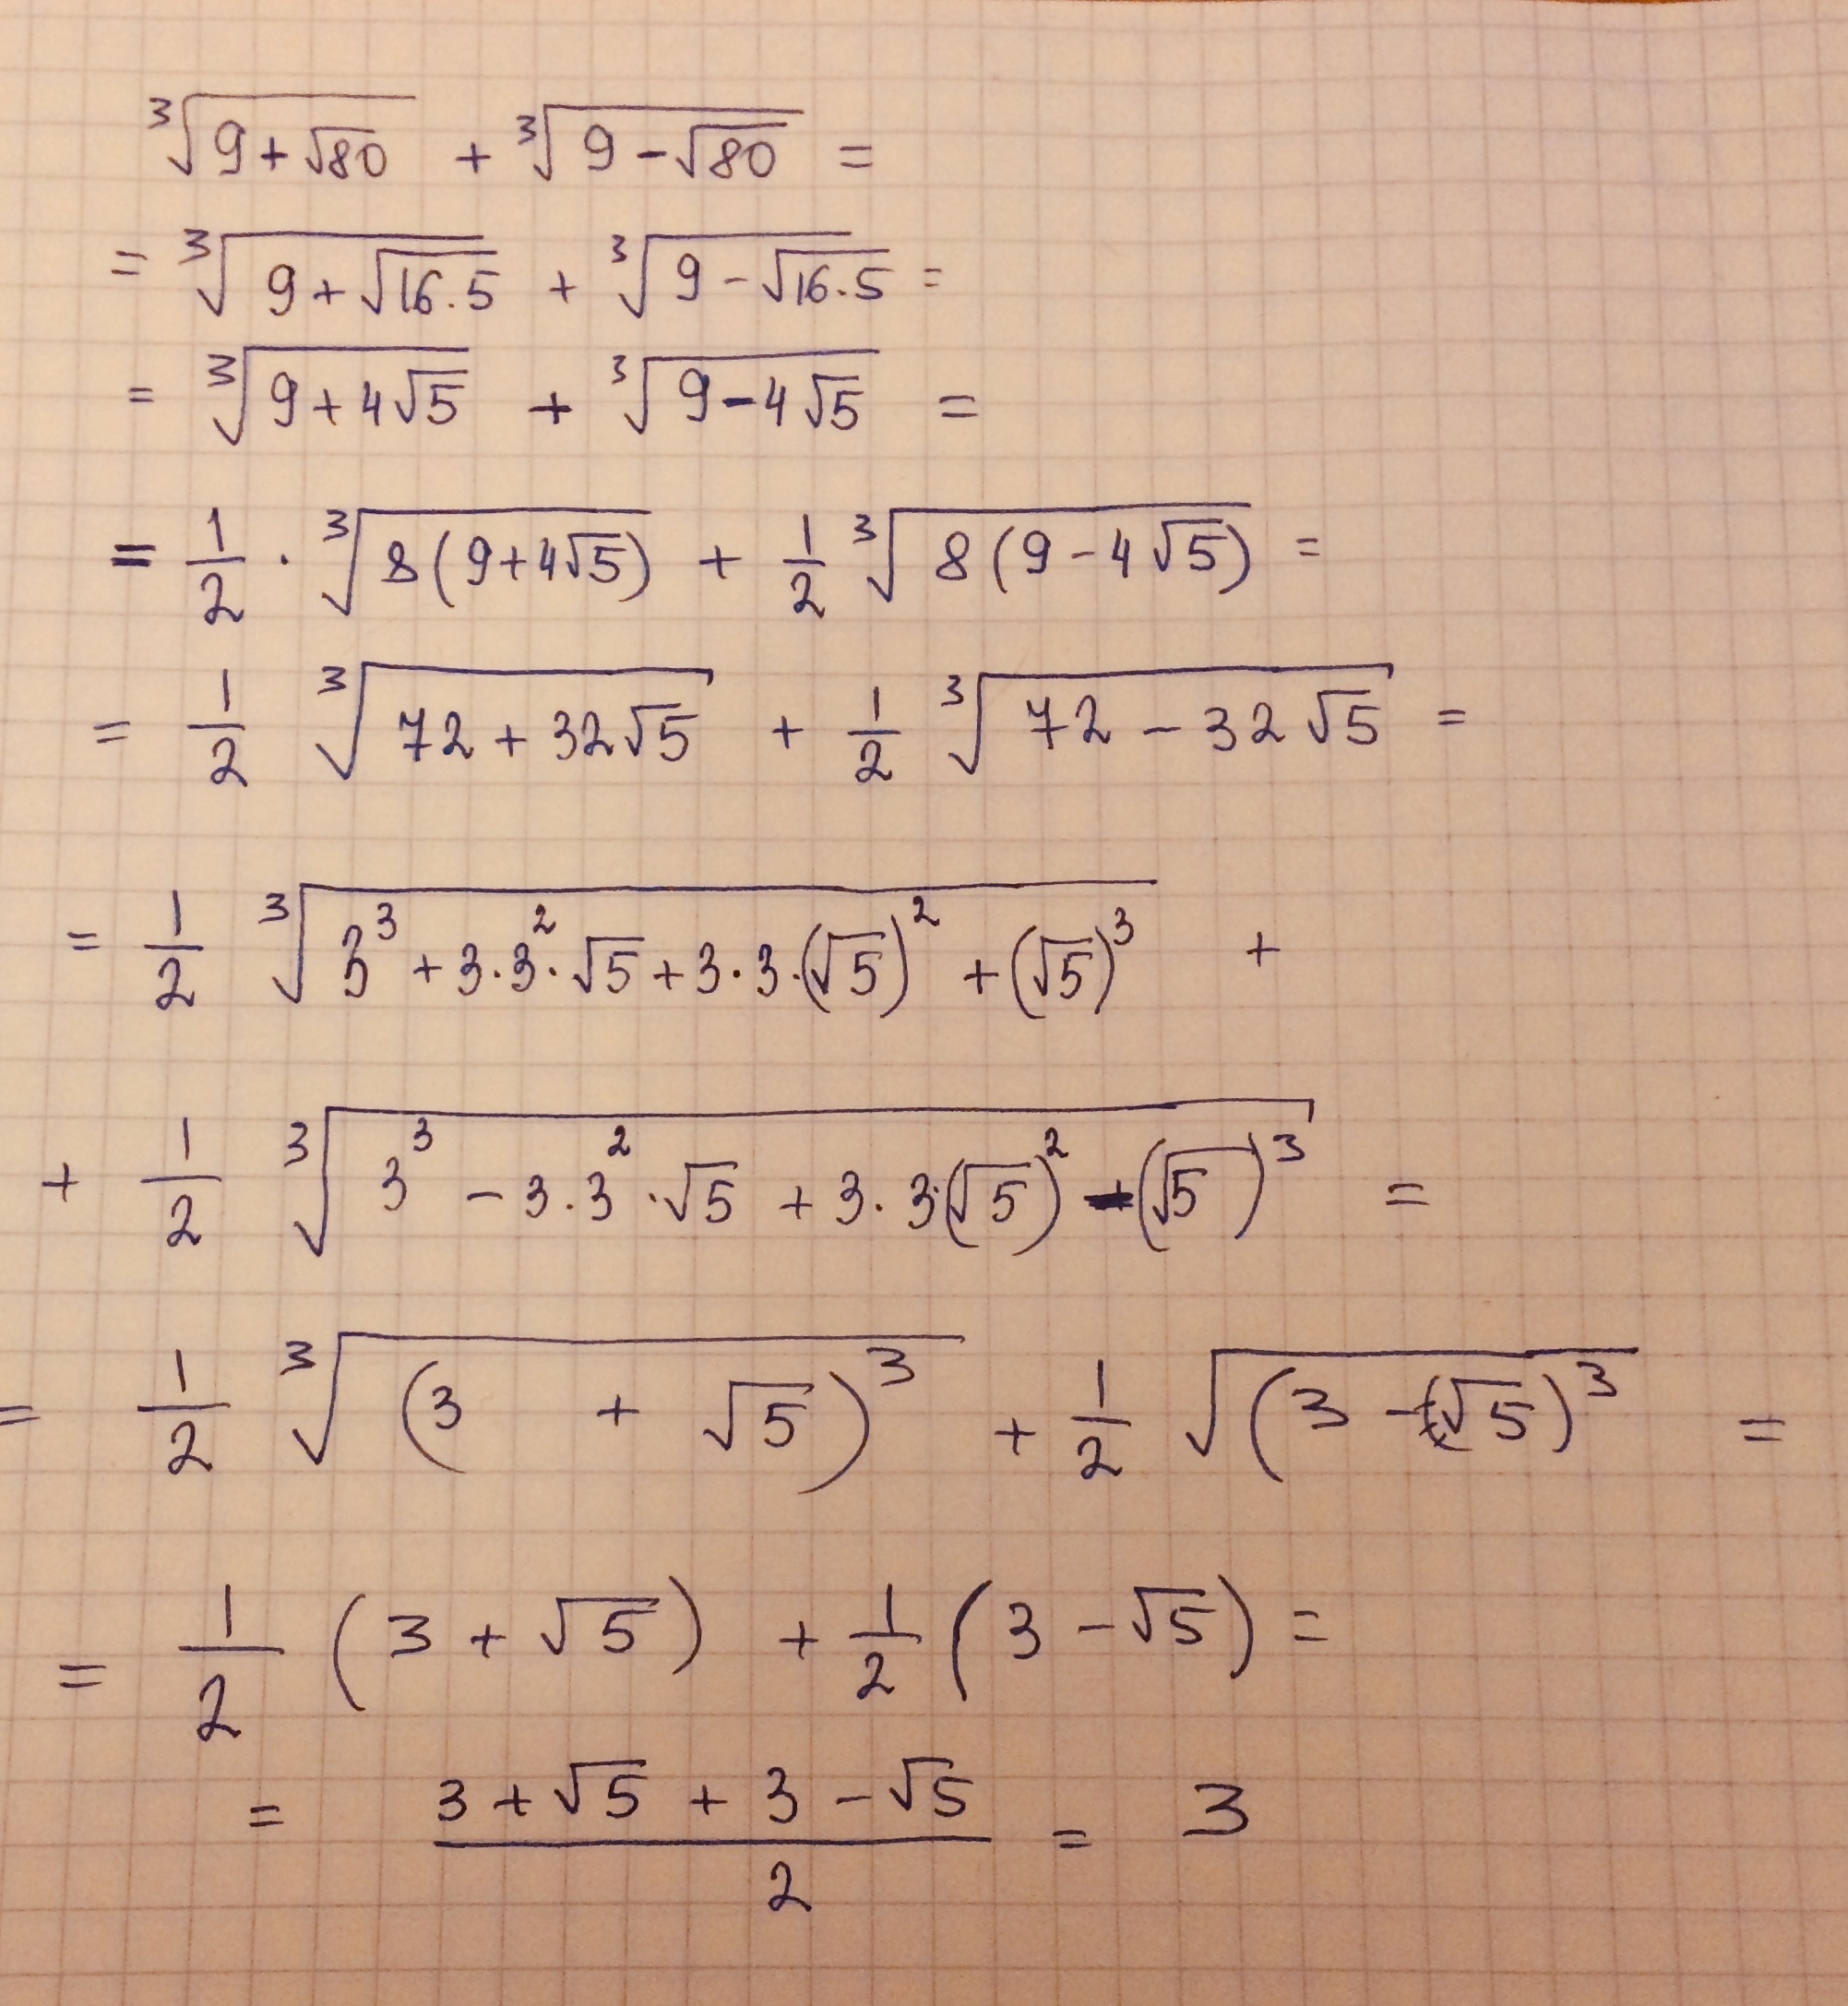 ∛(9+√80) + ∛(9-√80) =
= ∛(9+√(16.5)) + ∛(9-√(16.5)) =
= ∛(9+4√5) + ∛(9-4√5) =
= 1/2 · ∛(8(9+4√5)) + 1/2 ∛(8(9-4√5)) =
= 1/2 ∛(72+32√5) + 1/2 ∛(72-32√5) =
= 1/2 ∛(3³+3·3²·√5+3·3·(√5)²+(√5)³) +
+ 1/2 ∛(3³-3·3²·√5+3·3·(√5)²-(√5)³) =
= 1/2 ∛((3+√5)³) + 1/2 √((3-√5)³) =
= 1/2 (3+√5) + 1/2 (3-√5) =
= (3+√5+3-√5)/2 = 3